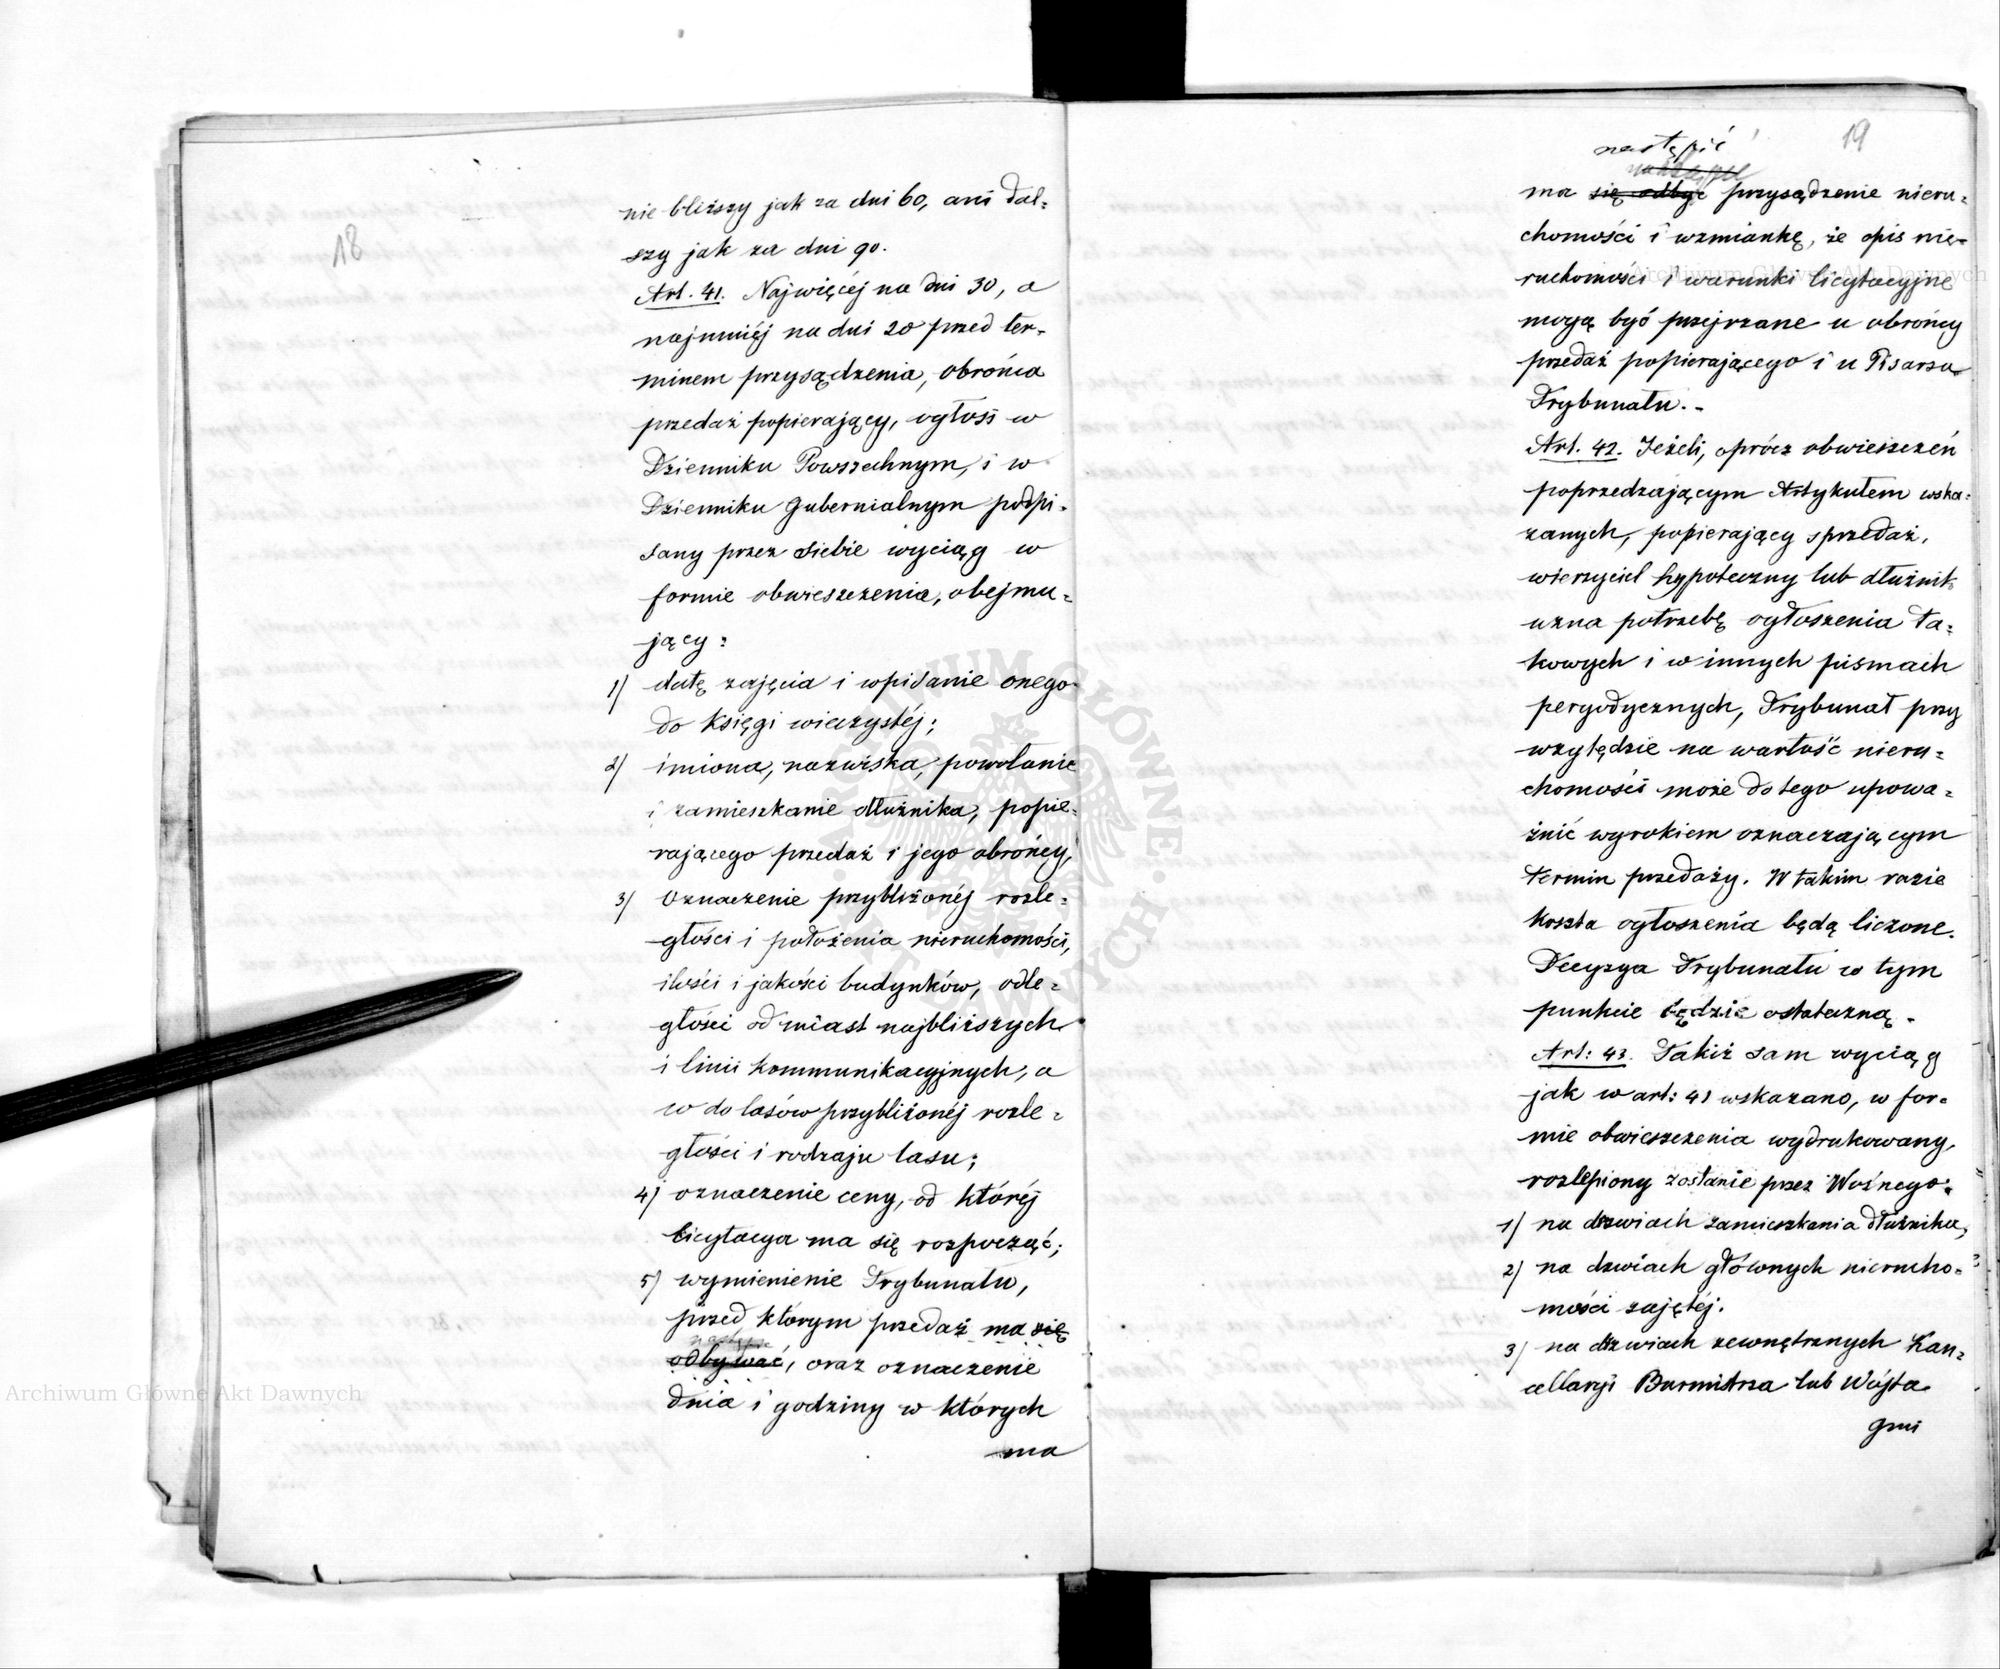 18
nie bliższy jak za dni 60, ani dal=
szy jak za dni 90.
Art. 41. Najwięcéj na dni 30, a
najmniéj na dni 20 przed ter=
minem przysądzenia, obrońca
przedaż popierający, ogłosi w
Dzienniku Powszechnym, i w
Dzienniku Gubernialnym podpi=
sany przez siebie wyciąg w
formie obwieszczenia, obejmu=
jący:
1) datę zajęcia i wpisanie onego
do księgi wieczystéj;
2) imiona, nazwiska, powołanie
i zamieszkanie dłużnika, popie=
rającego przedaż i jego obrońcy,
3) Oznaczenie przybliżonéj rozle=
głości i położenia nieruchomości,
ilości i jakości budynków, odle=
głości od miast najbliższych
i linii kommunikacyjnych, a
w do lasów przybliżonéj rozle=
głości i rodzaju lasu;
4) oznaczenie ceny, od któréj
licytacya ma się rozpocząć;
5) wymienienie Trybunału,
przed którym przedaż ma się
odbywać, oraz oznaczenie
dnia i godziny w których
ma
19
nastąpić
ma się odbyć przysądzenie nieru=
chomości i wzmiankę, że opis nie=
ruchomości i warunki licytacyjne
mogą być przejrzane u obrońcy
przedaż popierającego i u Pisarza
Trybunału.-
Art. 42. Jeżeli, oprócz obwieszczeń
poprzedzającym Artykułem wska=
zanych, popierający sprzedaż,
wierzyciel hypoteczny lub dłużnik
uzna potrzebę ogłoszenia ta=
kowych i w innych pismach
peryodycznych, Trybunał przy
względzie na wartość nieru=
chomości może do tego upowa=
żnić wyrokiem oznaczającym
termin przedaży. W takim razie
koszta ogłoszenia będą liczone.
Decyzya Trybunału w tym
punkcie będzie ostateczną.
Art: 43. Takiż sam wyciąg
jak w art: 41 wskazano, w for=
mie obwieszczenia wydrukowany,
rozlepiony zostanie przez Woźnego:
1) na drzwiach zamieszkania dłużnika,
2) na drzwiach głównych nierucho=
mości zajętéj.
3) na drzwiach zewnętrznych Kan=
cellaryi Burmistrza lub Wójta
gmi
Archiwum Główne Akt Dawnych
Archiwum Główne Akt Dawnych
ARCHIWUM GŁÓWNE AKT DAWNYCH